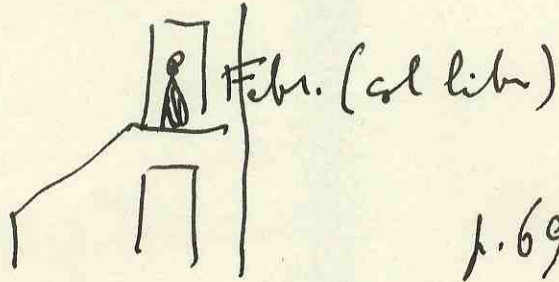 Febr. (col libro)
p. 69